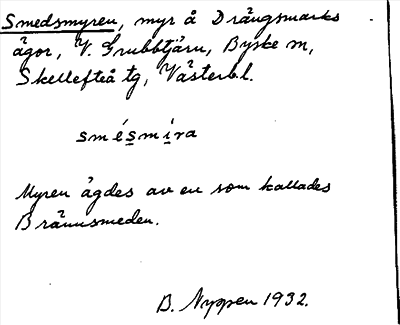 Smedsmyren, myr å Drängsmarks
ägor, V. Grubbtjärn, Byske m,
Skellefteå tg, Västerbl.
smésmíra
Myren ägdes av en som kallades
Brännsmeden.
B. Nyppen 1932.